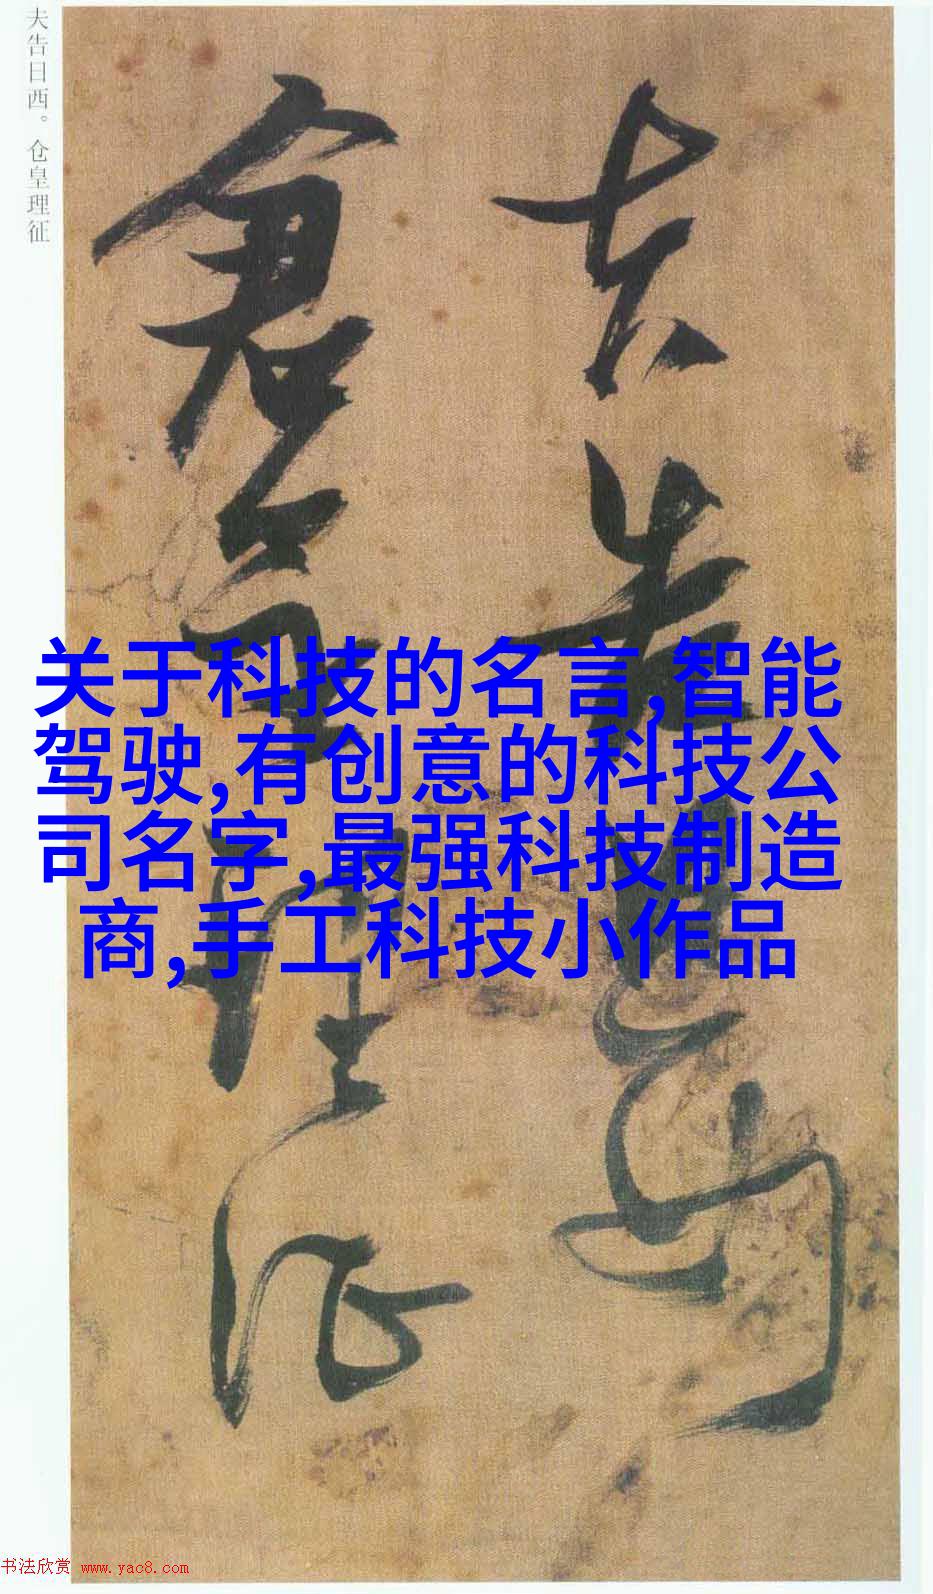 夫告日西。仓皇理征
夫告日西
仓皇理征
关于科技的名言,智能
驾驶,有创意的科技公
司名字,最强科技制造
商,手工科技小作品
书法欣赏 www.yac8.com